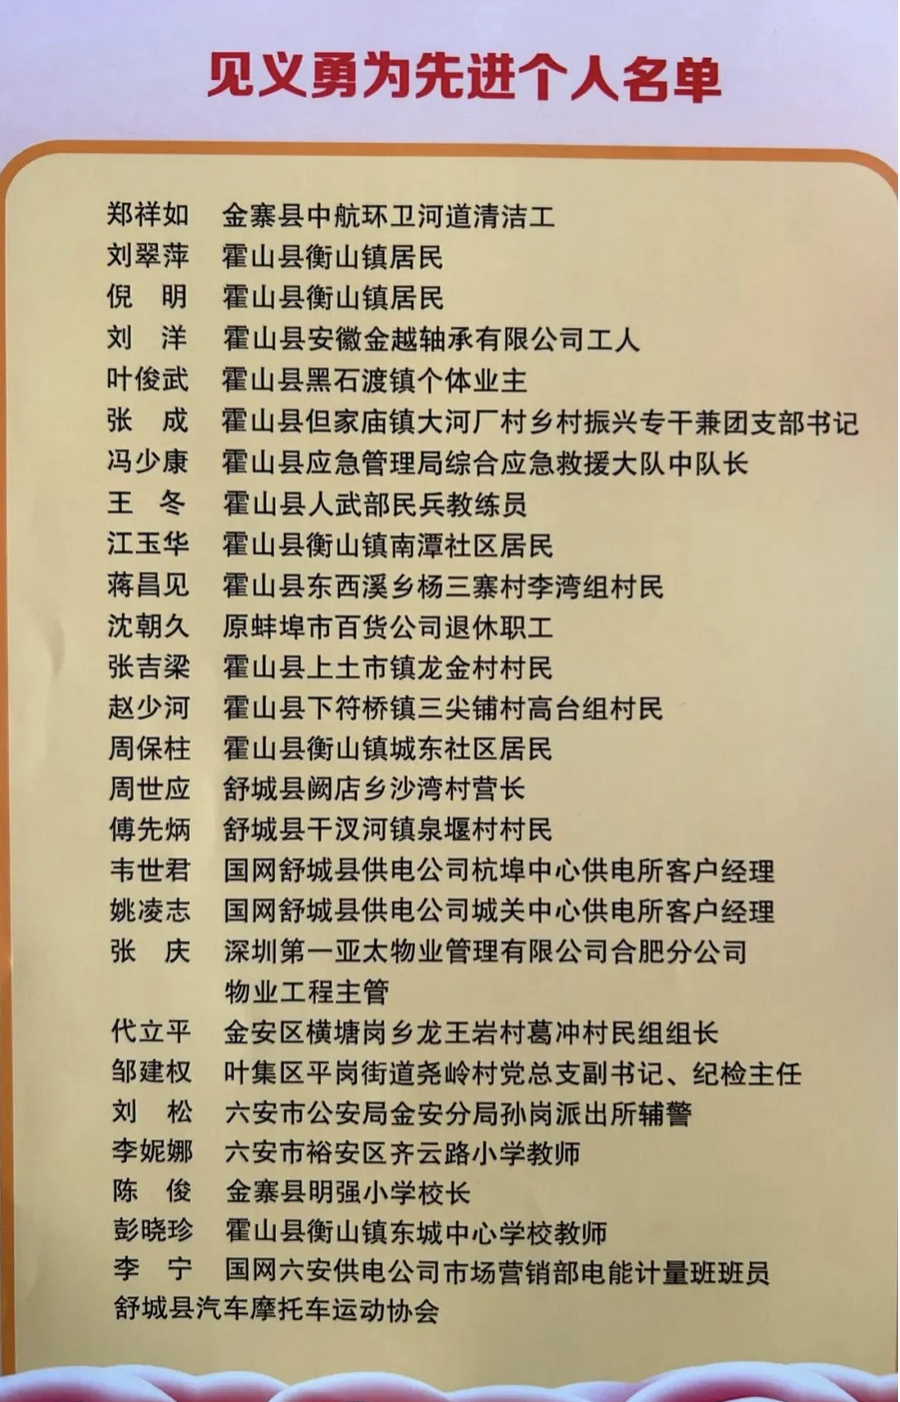 见义勇为先进个人名单
郑祥如 金寨县中航环卫河道清洁工
刘翠萍 霍山县衡山镇居民
倪 明 霍山县衡山镇居民
刘 洋 霍山县安徽金越轴承有限公司工人
叶俊武 霍山县黑石渡镇个体业主
张 成 霍山县但家庙镇大河厂村乡村振兴专干兼团支部书记
冯少康 霍山县应急管理局综合应急救援大队中队长
王 冬 霍山县人武部民兵教练员
江玉华 霍山县衡山镇南潭社区居民
蒋昌见 霍山县东西溪乡杨三寨村李湾组村民
沈朝久 原蚌埠市百货公司退休职工
张吉梁 霍山县上土市镇龙金村村民
赵少河 霍山县下符桥镇三尖铺村高台组村民
周保柱 霍山县衡山镇城东社区居民
周世应 舒城县阙店乡沙湾村营长
傅先炳 舒城县干汊河镇泉堰村村民
韦世君 国网舒城县供电公司杭埠中心供电所客户经理
姚凌志 国网舒城县供电公司城关中心供电所客户经理
张 庆 深圳第一亚太物业管理有限公司合肥分公司
物业工程主管
代立平 金安区横塘岗乡龙王岩村葛冲村民组组长
邹建权 叶集区平岗街道尧岭村党总支副书记、纪检主任
刘 松 六安市公安局金安分局孙岗派出所辅警
李妮娜 六安市裕安区齐云路小学教师
陈 俊 金寨县明强小学校长
彭晓珍 霍山县衡山镇东城中心学校教师
李 宁 国网六安供电公司市场营销部电能计量班班员
舒城县汽车摩托车运动协会